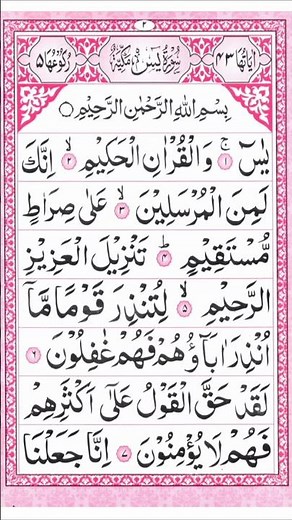 ۲
اٰیَاتُهَا ۴۳ سُوْرَةُ یٰسٓ مَكِّیَّةٌ رُكُوْعُهَا ۵
بِسْمِ اللّٰهِ الرَّحْمٰنِ الرَّحِیْمِ ○
یٰسٓ ۚ ۱ وَالْقُرْاٰنِ الْحَكِیْمِ ۙ ۲ اِنَّكَ
لَمِنَ الْمُرْسَلِیْنَ ۙ ۳ عَلٰی صِرَاطٍ
مُّسْتَقِیْمٍ ؕ ۴ تَنْزِیْلَ الْعَزِیْزِ
الرَّحِیْمِ ۙ ۵ لِتُنْذِرَ قَوْمًا مَّاۤ
اُنْذِرَ اٰبَآؤُهُمْ فَهُمْ غٰفِلُوْنَ ۶
لَقَدْ حَقَّ الْقَوْلُ عَلٰۤی اَكْثَرِهِمْ
فَهُمْ لَا یُؤْمِنُوْنَ ۷ اِنَّا جَعَلْنَا